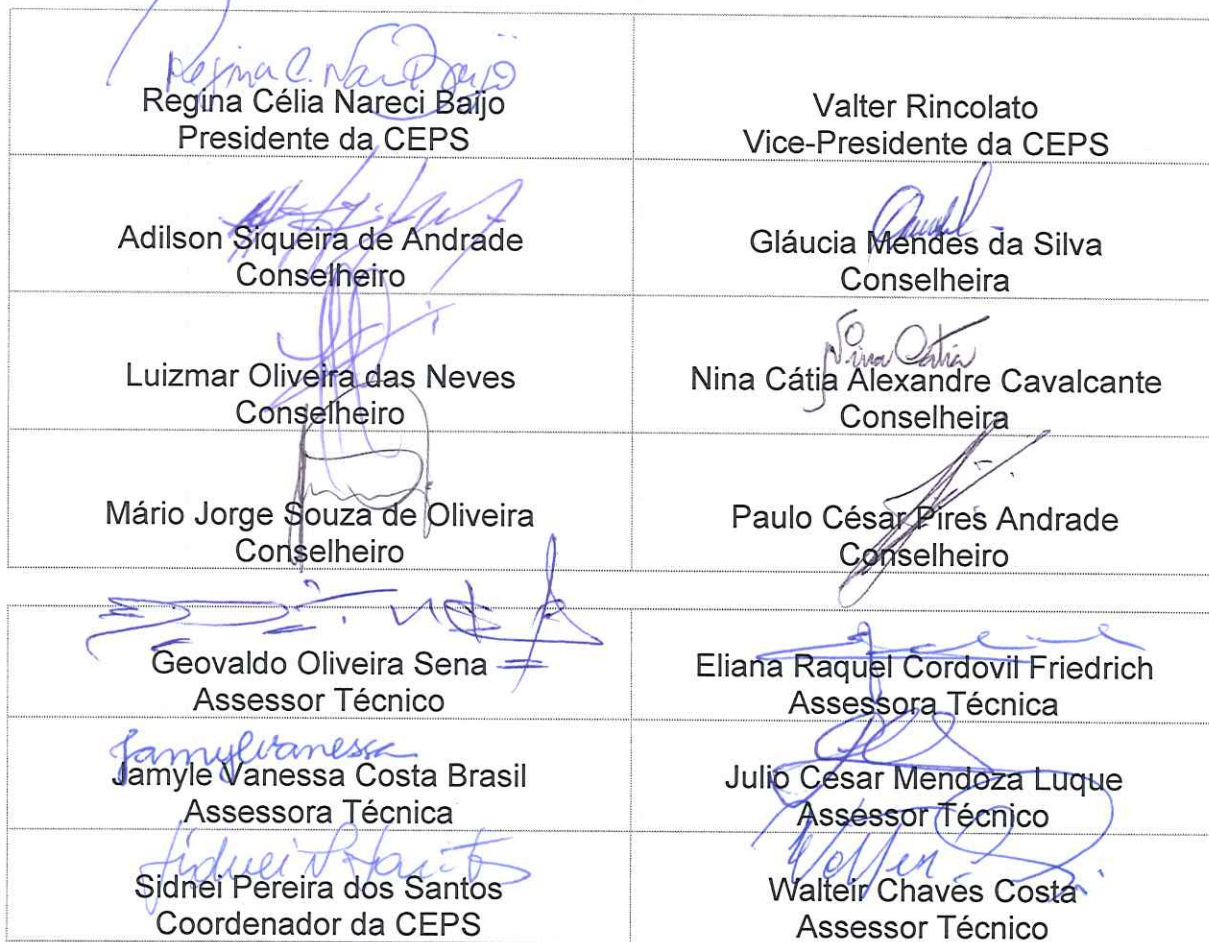 Regina C. Nareci Baijo
Regina Célia Nareci Baijo
Presidente da CEPS
Valter Rincolato
Vice-Presidente da CEPS
Adilson Siqueira de Andrade
Conselheiro
Gláucia Mendes da Silva
Conselheira
Luizmar Oliveira das Neves
Conselheiro
Nina Cátia
Nina Cátia Alexandre Cavalcante
Conselheira
Mário Jorge Souza de Oliveira
Conselheiro
Paulo César Pires Andrade
Conselheiro
Geovaldo Oliveira Sena
Assessor Técnico
Eliana Raquel Cordovil Friedrich
Assessora Técnica
Jamylevanessa
Jamyle Vanessa Costa Brasil
Assessora Técnica
Julio Cesar Mendoza Luque
Assessor Técnico
Sidnei P. Santos
Sidnei Pereira dos Santos
Coordenador da CEPS
Walteir Chaves Costa
Assessor Técnico